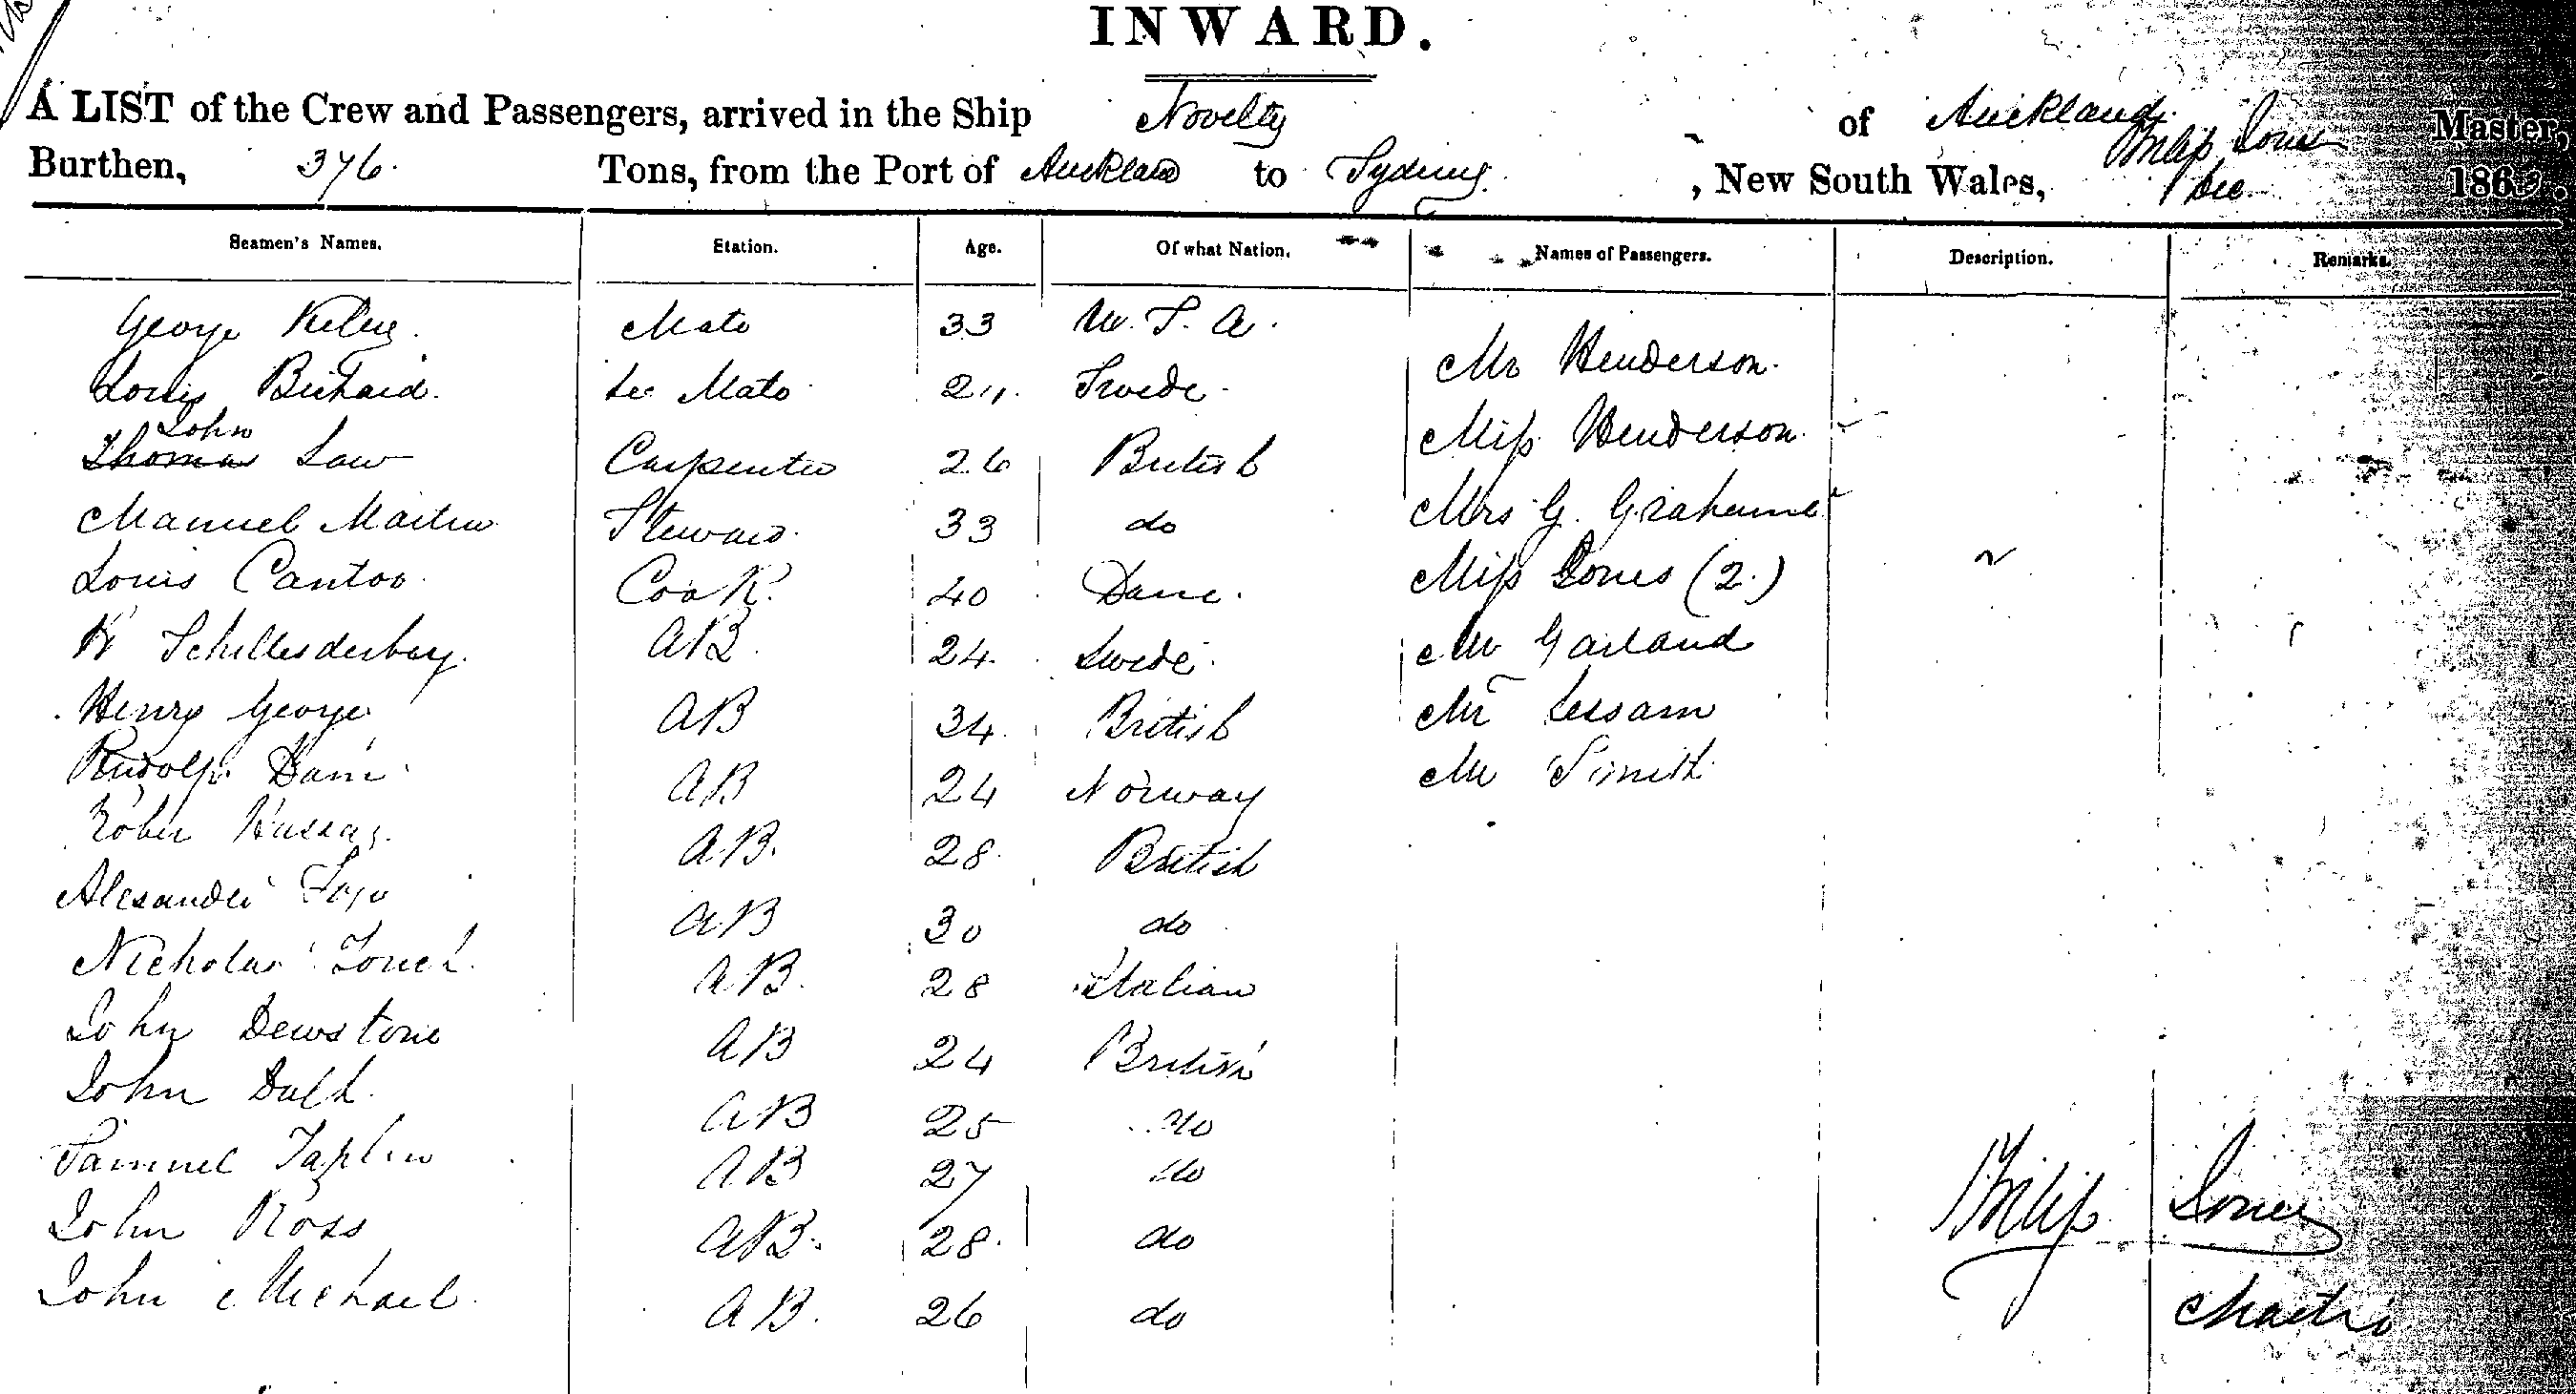 INWARD.
A LIST of the Crew and Passengers, arrived in the Ship Novelty of Auckland Philip Jones Master,
Burthen, 376. Tons, from the Port of Auckland to Sydney, New South Wales, 1 Dec 186
Seamen's Names. Station. Age. Of what Nation. Names of Passengers. Description. Remarks.
George Mate 33 U. S. A. Mr Henderson.
Louis Sec Mate 24. Swede. Miss Henderson.
John
Thomas Law Carpenter 26 British Mrs G. Grahame
Manuel Martin Steward. 33 do Miss Jones (2.)
Louis Cantor Cook. 40 Dane. Mr Garland
K AB. 24. Swede. Mr Lessam
Henry George AB 34. British Mr Smith
Rudolph AB 24 Norway
Hussay. AB. 28. British
Alexander AB 30 do
Nicholas AB. 28 Italian
John Dewstone AB 24 British
John AB 25 do
Samuel Taplin AB 27 do
John Ross AB. 28. do
John Michael AB. 26 do
Philip Jones
Master